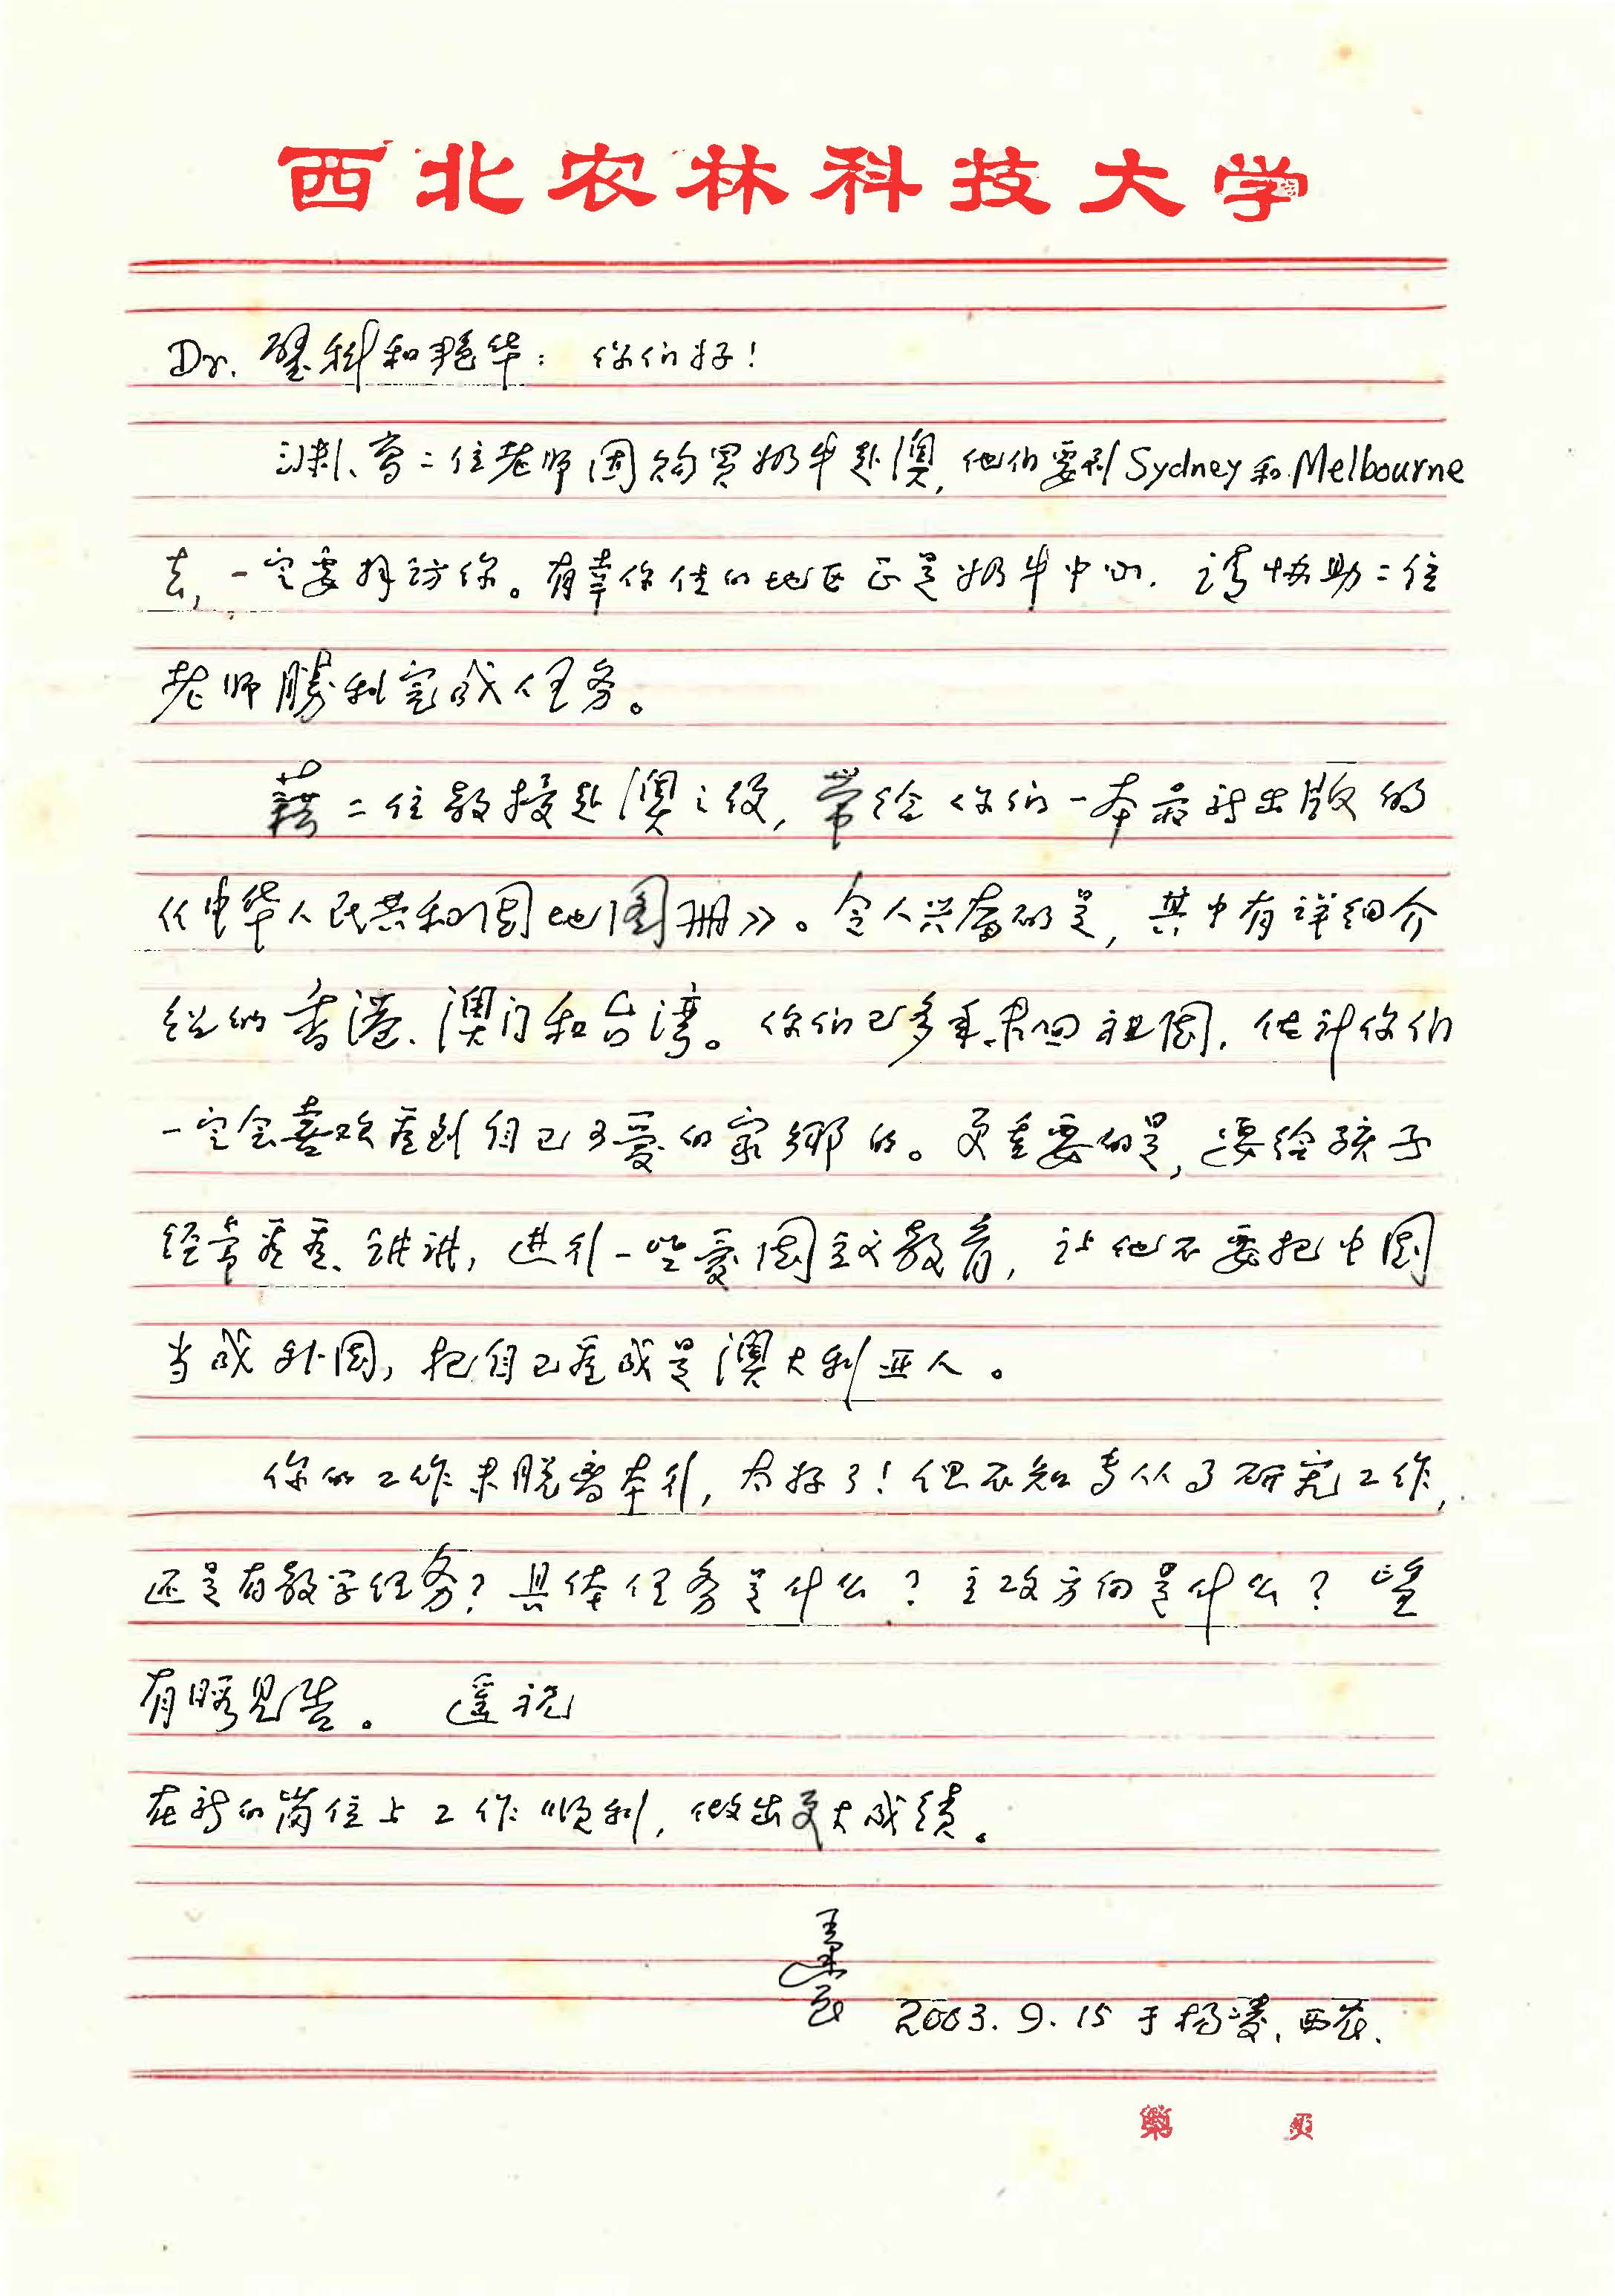 西北农林科技大学
Dr. 科和艳华：你们好！
高二位老师因购買奶牛赴澳，他们要到Sydney和Melbourne
去，一定要拜访你。有幸你住的地区正是奶牛中心，请协助二位
老师勝利完成任务。
藉二位教授赴澳之役，带给你们一本最新出版的
《中华人民共和国地图册》。令人兴奋的是，其中有详细介
绍的香港、澳门和台湾。你们已多年未回祖国，估计你们
一定会喜欢看到自己可爱的家鄉的。更重要的是，要给孩子
经常看看、讲讲，进行一些爱国主义教育，让他不要把中国
当成外国，把自己看成是澳大利亚人。
你的工作未脱离本行，太好了！但不知专从事研究工作，
还是有教学任务？具体任务是什么？主攻方向是什么？望
有暇见告。 遥祝
在新的岗位上工作顺利，做出更大成绩。
2003.9.15 于杨凌，西农.
第 页